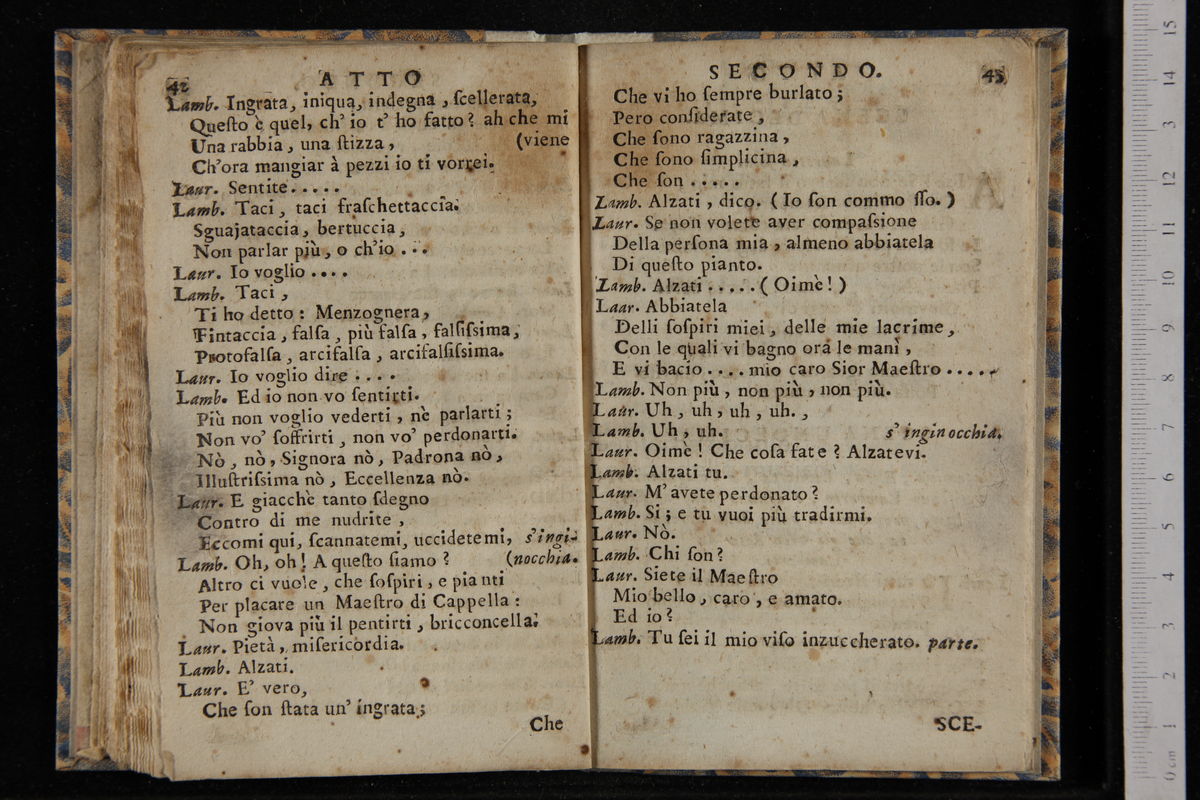 42 ATTO
Lamb. Ingrata, iniqua, indegna, ſcellerata,
Queſto è quel, ch' io t' ho fatto? ah che mi
Una rabbia, una ſtizza, (viene
Ch'ora mangiar à pezzi io ti vorrei.
Laur. Sentite.....
Lamb. Taci, taci fraſchettaccia:
Sguajataccia, bertuccia,
Non parlar più, o ch'io ...
Laur. Io voglio ....
Lamb. Taci,
Ti ho detto: Menzognera,
Fintaccia, falſa, più falſa, falſiſsima,
Protofalſa, arcifalſa, arcifalſiſsima.
Laur. Io voglio dire ....
Lamb. Ed io non vo ſentirti.
Più non voglio vederti, nè parlarti;
Non vo' ſoffrirti, non vo' perdonarti.
Nò, nò, Signora nò, Padrona nò,
Illuſtriſsima nò, Eccellenza nò.
Laur. E giacchè tanto ſdegno
Contro di me nudrite,
Eccomi qui, ſcannatemi, uccidetemi, s'ingi-
Lamb. Oh, oh! A queſto ſiamo? (nocchia.
Altro ci vuole, che ſoſpiri, e pianti
Per placare un Maeſtro di Cappella:
Non giova più il pentirti, bricconcella:
Laur. Pietà, miſericordia.
Lamb. Alzati.
Laur. E' vero,
Che ſon ſtata un' ingrata;
Che
SECONDO. 43
Che vi ho ſempre burlato;
Pero conſiderate,
Che ſono ragazzina,
Che ſono ſimplicina,
Che ſon .....
Lamb. Alzati, dico. (Io ſon commo ſſo.)
Laur. Se non volete aver compaſsione
Della perſona mia, almeno abbiatela
Di queſto pianto.
Lamb. Alzati ..... (Oimè!)
Laar. Abbiatela
Delli ſoſpiri miei, delle mie lacrime,
Con le quali vi bagno ora le mani,
E vi bacio .... mio caro Sior Maeſtro .....
Lamb. Non più, non più, non più.
Laur. Uh, uh, uh, uh.,
Lamb. Uh, uh. s' inginocchia.
Laur. Oimè! Che coſa fate? Alzatevi.
Lamb. Alzati tu.
Laur. M' avete perdonato?
Lamb. Si; e tu vuoi più tradirmi.
Laur. Nò.
Lamb. Chi ſon?
Laur. Siete il Maeſtro
Mio bello, caro, e amato.
Ed io?
Lamb. Tu ſei il mio viſo inzuccherato. parte.
SCE-
0 cm 1 2 3 4 5 6 7 8 9 10 11 12 3 14 15